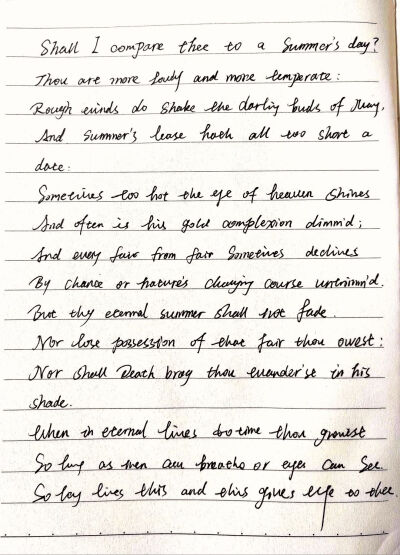 Shall I compare thee to a Summer's day?
Thou are more lovely and more temperate:
Rough winds do shake the darling buds of May,
And Summer's lease hath all too short a
date:
Sometimes too hot the eye of heaven shines
And often is his gold complexion dimm'd;
And every fair from fair Sometimes declines
By chance or nature's changing course untrimm'd.
But thy eternal summer shall not fade.
Nor lose possession of that fair thou owest:
Nor shall Death brag thou wander'se in his
shade.
When in eternal lines to time thou growest
So long as men can breathe or eyes can See.
So long lives this and this gives life to thee.